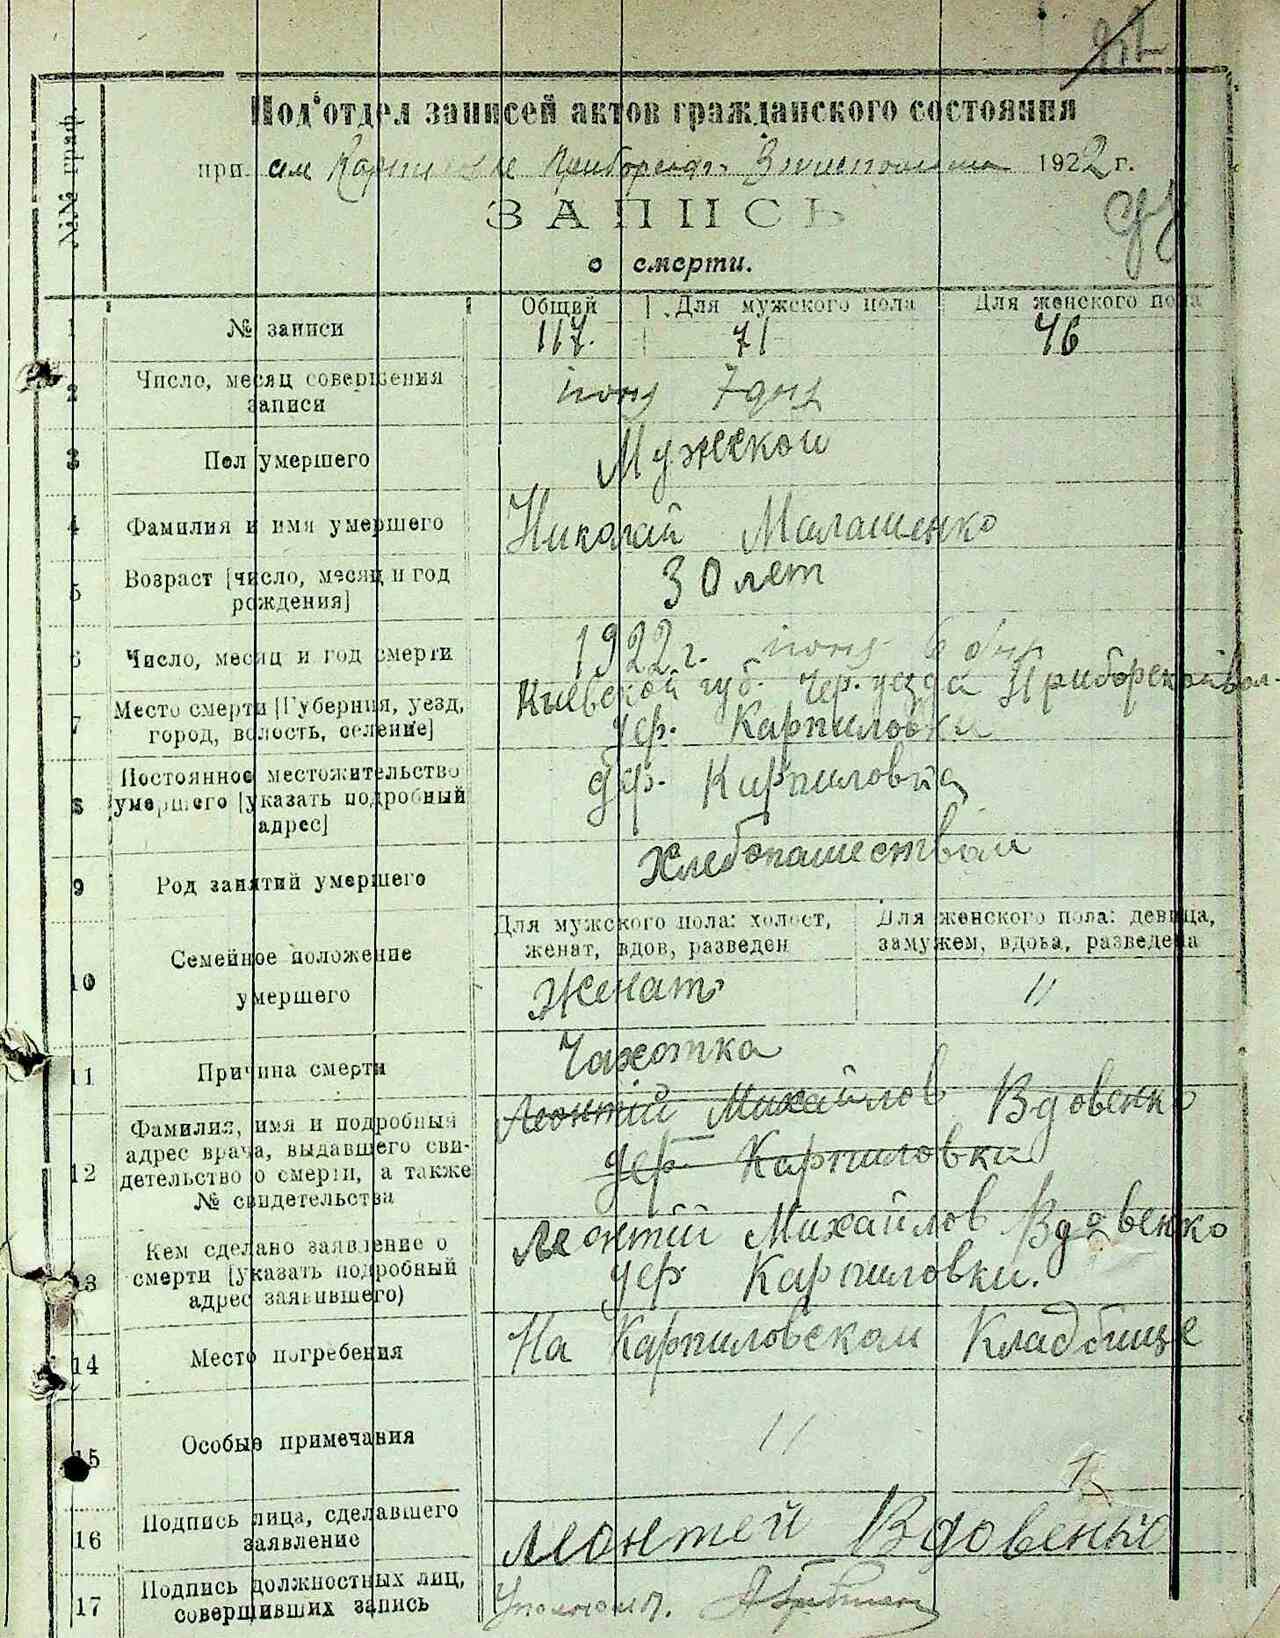 №№ граф.
Под'отдел записей актов гражданского состояния
при 1922 г.
ЗАПИСЬ
о смерти.
Общий Для мужского пола Для женского пола
1 № записи 117. 71 46
2 Число, месяц совершения
записи июня 7 дня
3 Пол умершего Мужской
4 Фамилия и имя умершего Николай Малашенко
5 Возраст [число, месяц и год
рождения] 30 лет
6 Число, месяц и год смерти 1922 г. июня 6 дня
7 Место смерти [Губерния, уезд,
город, волость, селение]
Киевской губ. Чер. уезда Приборской вол.
дер. Карпиловки
8 Постоянное местожительство
умершего [указать подробный
адрес]
дер. Карпиловка
9 Род занятий умершего Хлебопашеством
10 Семейное положение
умершего
Для мужского пола: холост,
женат, вдов, разведен
Для женского пола: девица,
замужем, вдова, разведена
Женат "
11 Причина смерти Чахотка
12 Фамилия, имя и подробный
адрес врача, выдавшего сви-
детельство о смерти, а также
№ свидетельства
Леонтій Михайлов Вдовенко
дер. Карпиловки
13 Кем сделано заявление о
смерти [указать подробный
адрес заявившего)
Леонтій Михайлов Вдовенко
дер. Карпиловки.
14 Место погребения На Карпиловском Кладбище
15 Особые примечания "
16 Подпись лица, сделавшего
заявление Леонтей Вдовенко
17 Подпись должностных лиц,
совершивших запись